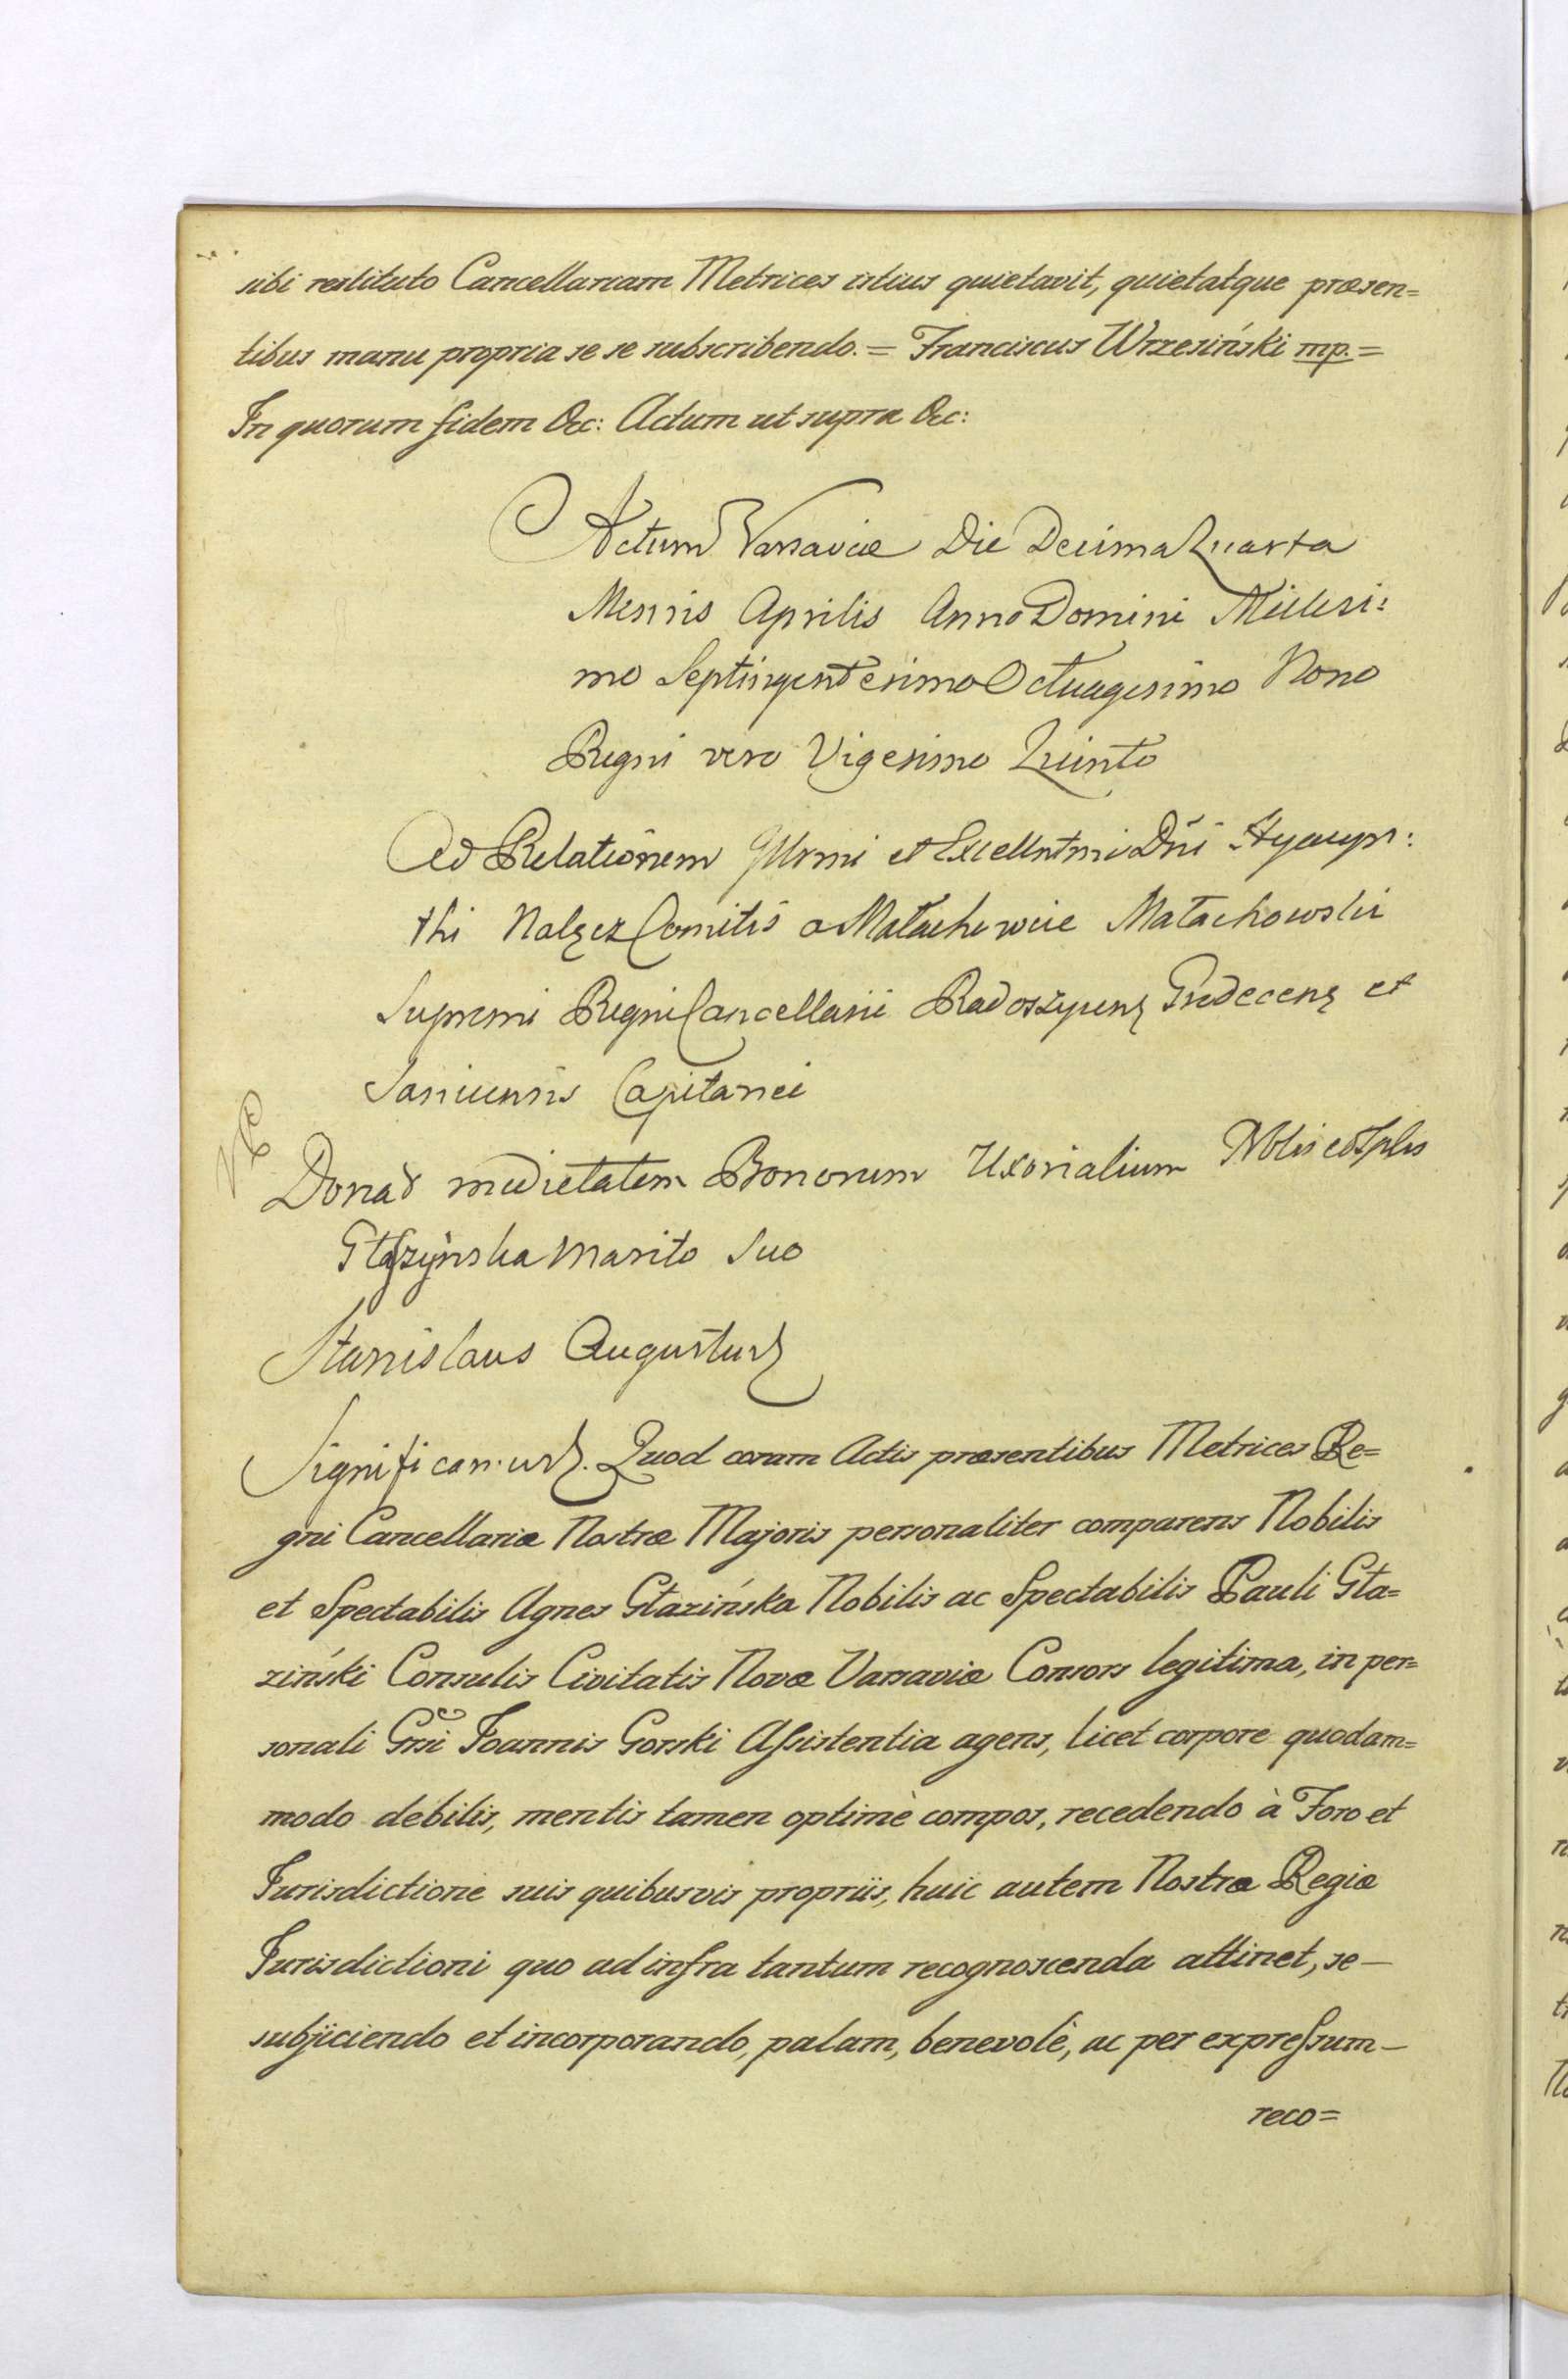 sibi restituto Cancellariam Metrices istius quietavit, quietatque præsen=
tibus manu propria se se subscribendo. = Franciscus Wrzesiński mp. =
In quorum fidem &c: Actum ut supra &c:
Actum Varsaviæ Die Decima Quarta
Mensis Aprilis Anno Domini Millesi:
mo Septingentesimo Octuagesimo Nono
Regni vero Vigesimo Quinto
Ad Relationem Illrmi et Excellntmi Dñi Hyacyn:
thi Nalęcz Comitis a Małachowice Małachowski
Supremi Regni Cancellarii Radoszycens Grodecens et
Capitanei
Donat medietatem Bonorum Uxorialium Nblis et Splis
Głaszyńska Marito Suo
Stanislaus Augustus
Significamus. Quod coram Actis præsentibus Metrices Re=
gni Cancellariæ Nostræ Majoris personaliter comparens Nobilis
et Spectabilis Agnes Głazińska Nobilis ac Spectabilis Pauli Gła=
ziński Consulis Civitatis Novæ Varsaviæ Consors legitima, in per=
sonali Grsi Joannis Gorski Assistentia agens, licet corpore quodam=
modo debilis, mentis tamen optimè compos, recedendo à Foro et
Jurisdictione suis quibusvis propriis, huic autem Nostræ Regiæ
Jurisdictioni quo ad infra tantum recognoscenda attinet, se —
subjiciendo et incorporando, palam, benevolè, ac per expressum —
reco=